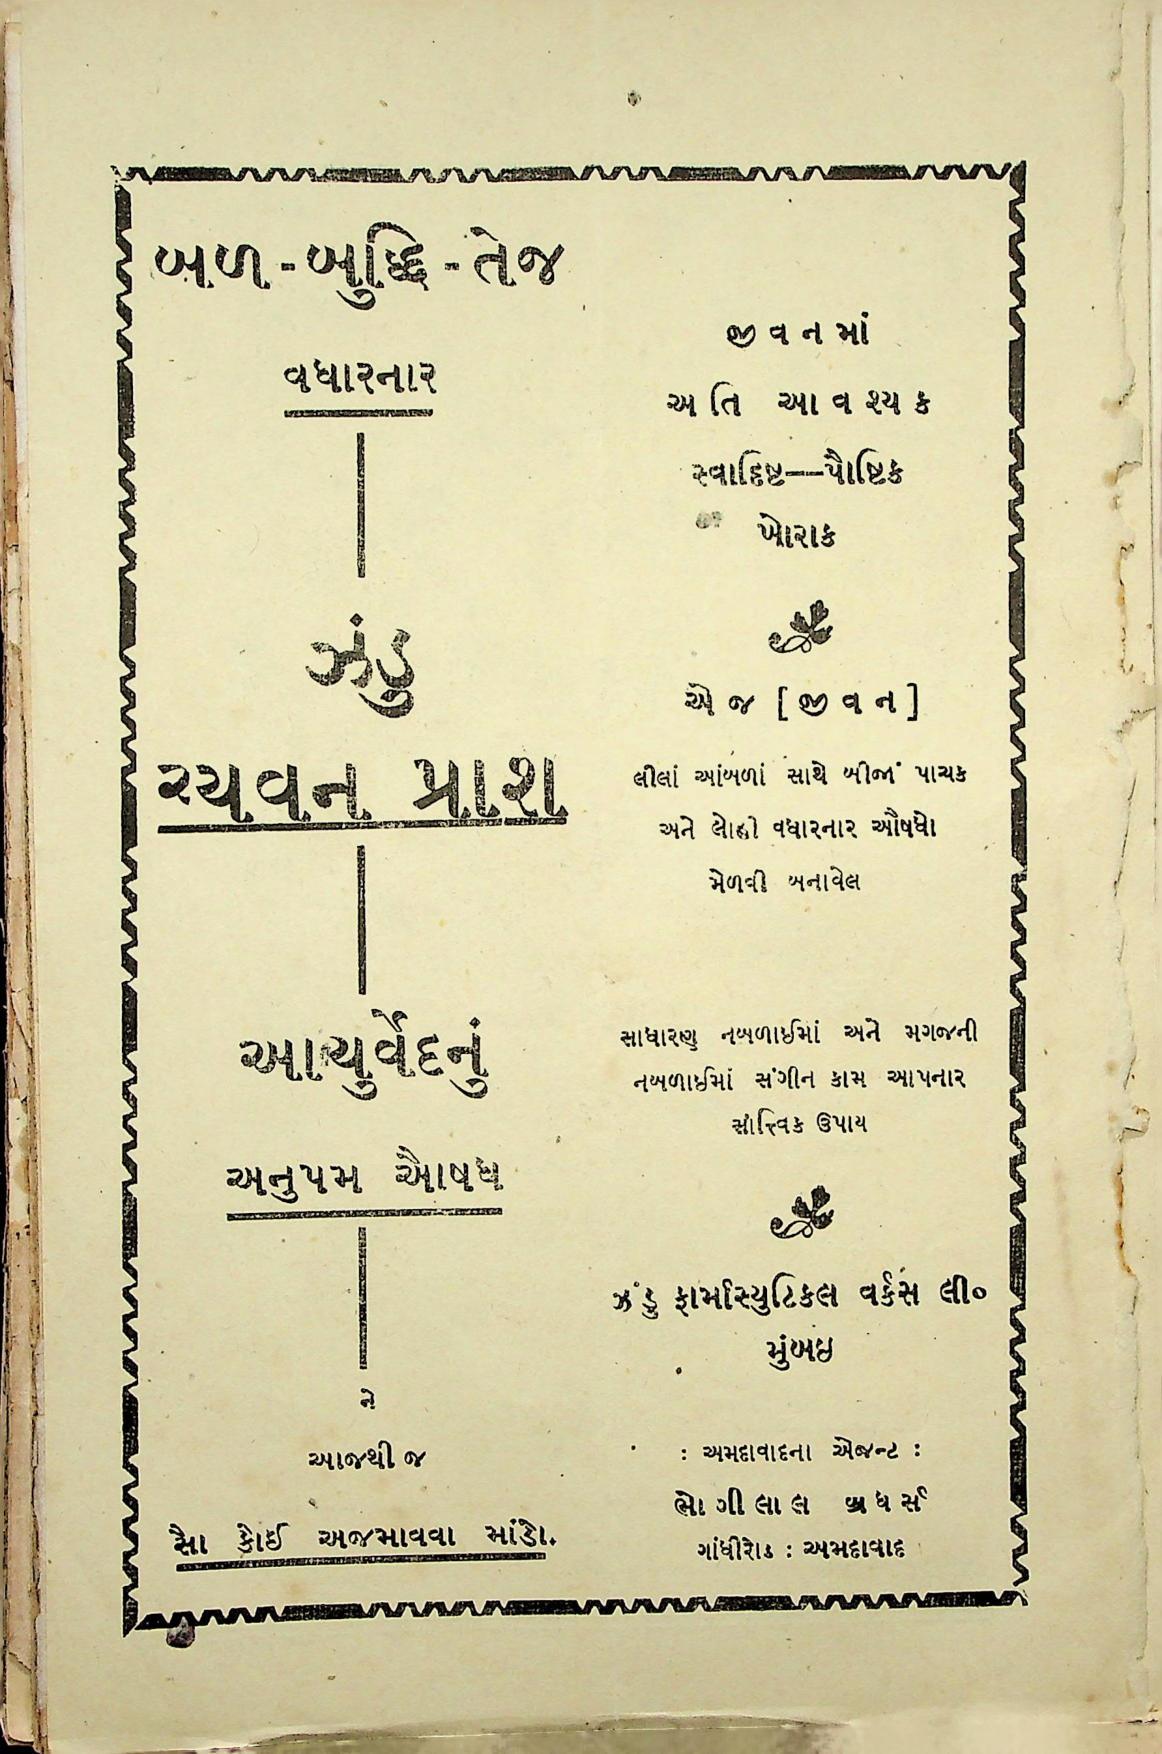 બળ - બુદ્ધિ - તેજ
વધારનાર
ઝંડુ
ચ્યવન પ્રાશ
આયુર્વેદનું
અનુપમ ઔષધ
ને
આજથી જ
સૌ કોઈ અજમાવવા માંડો.
જીવનમાં
અતિ આવશ્યક
સ્વાદિષ્ટ—પૌષ્ટિક
ખોરાક
એ જ [જીવન]
લીલાં આંબળાં સાથે બીજાં પાચક
અને લોહી વધારનાર ઔષધો
મેળવી બનાવેલ
સાધારણ નબળાઈમાં અને મગજની
નબળાઈમાં સંગીન કામ આપનાર
સાત્ત્વિક ઉપાય
ઝંડુ ફાર્માસ્યુટિકલ વર્કસ લી૦
મુંબઇ
: અમદાવાદના એજન્ટ :
ભોગીલાલ બ્રધર્સ
ગાંધીરોડ : અમદાવાદ